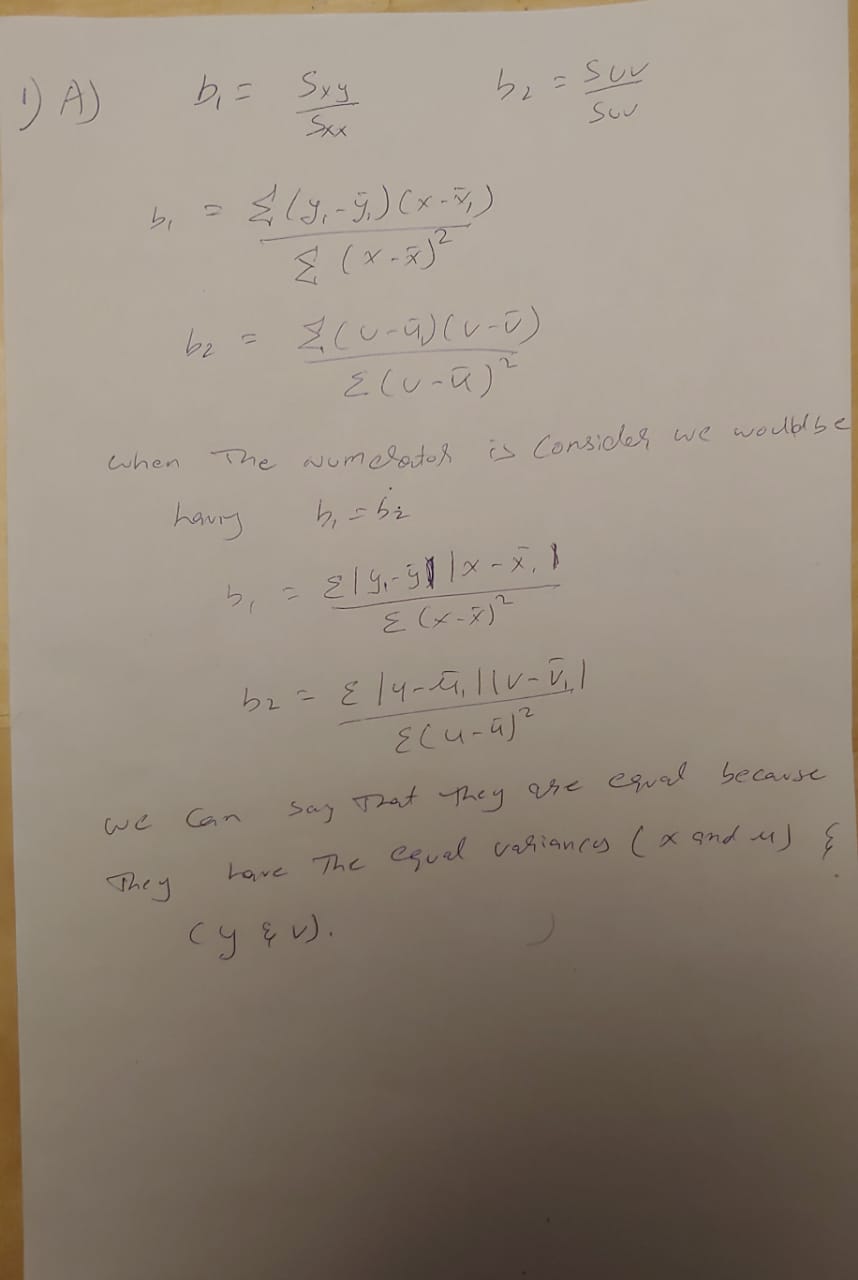 1) A) b₁ = Sxy / Sxx b₂ = Suv / Suu
b₁ = Σ(y₁-ȳ₁)(x-x̄₁) / Σ(x-x̄)²
b₂ = Σ(u-ū₁)(v-v̄) / Σ(u-ū)²
when The numerator is Consider we would be
having b₁ = b₂
b₁ = Σ|y₁-ȳ||x-x̄₁| / Σ(x-x̄)²
b₂ = Σ|u-ū₁||v-v̄₁| / Σ(u-ū)²
we Can say That They are equal because
They have The equal variances (x and u) &
(y & v).